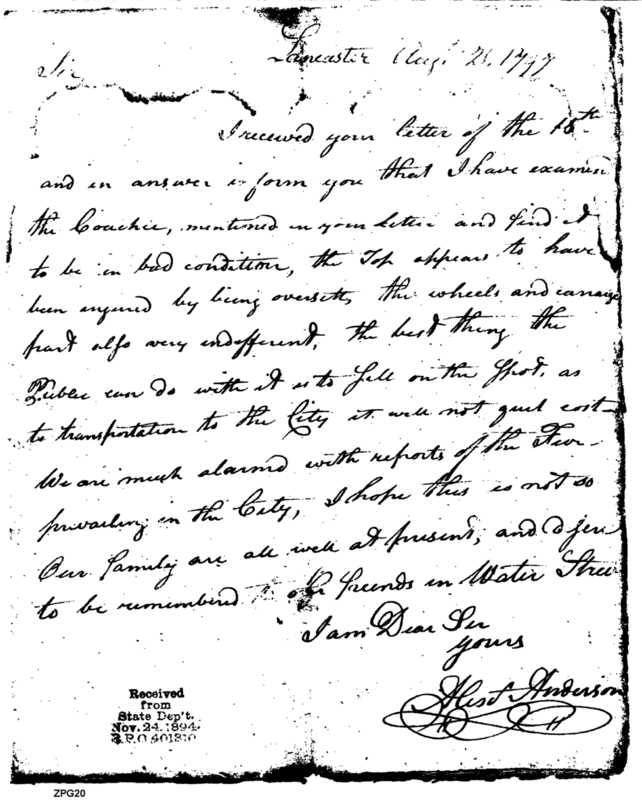 Lancaster Augt 21. 1797
Sir
I received your letter of the 18th
and in answer inform you that I have examin
the Coachee, mentioned in your letter and find it
to be in bad condition, the Top appears to have
been injured by being oversett, the wheels and carriage
part also very indefferent, the best thing the
Public can do with it is to Sell on the Spot, as
to transportation to the City it will not quit cost
We are much alarmed with reports of the Fever
prevailing in the City, I hope this is not so
Our family are all well at present, and desire
to be remembered to our freends in Water Stree
I am Dear Sir
yours
Anderson
Received
from
State Dep't.
Nov. 24. 1894
R.P.O 401310
ZPG20